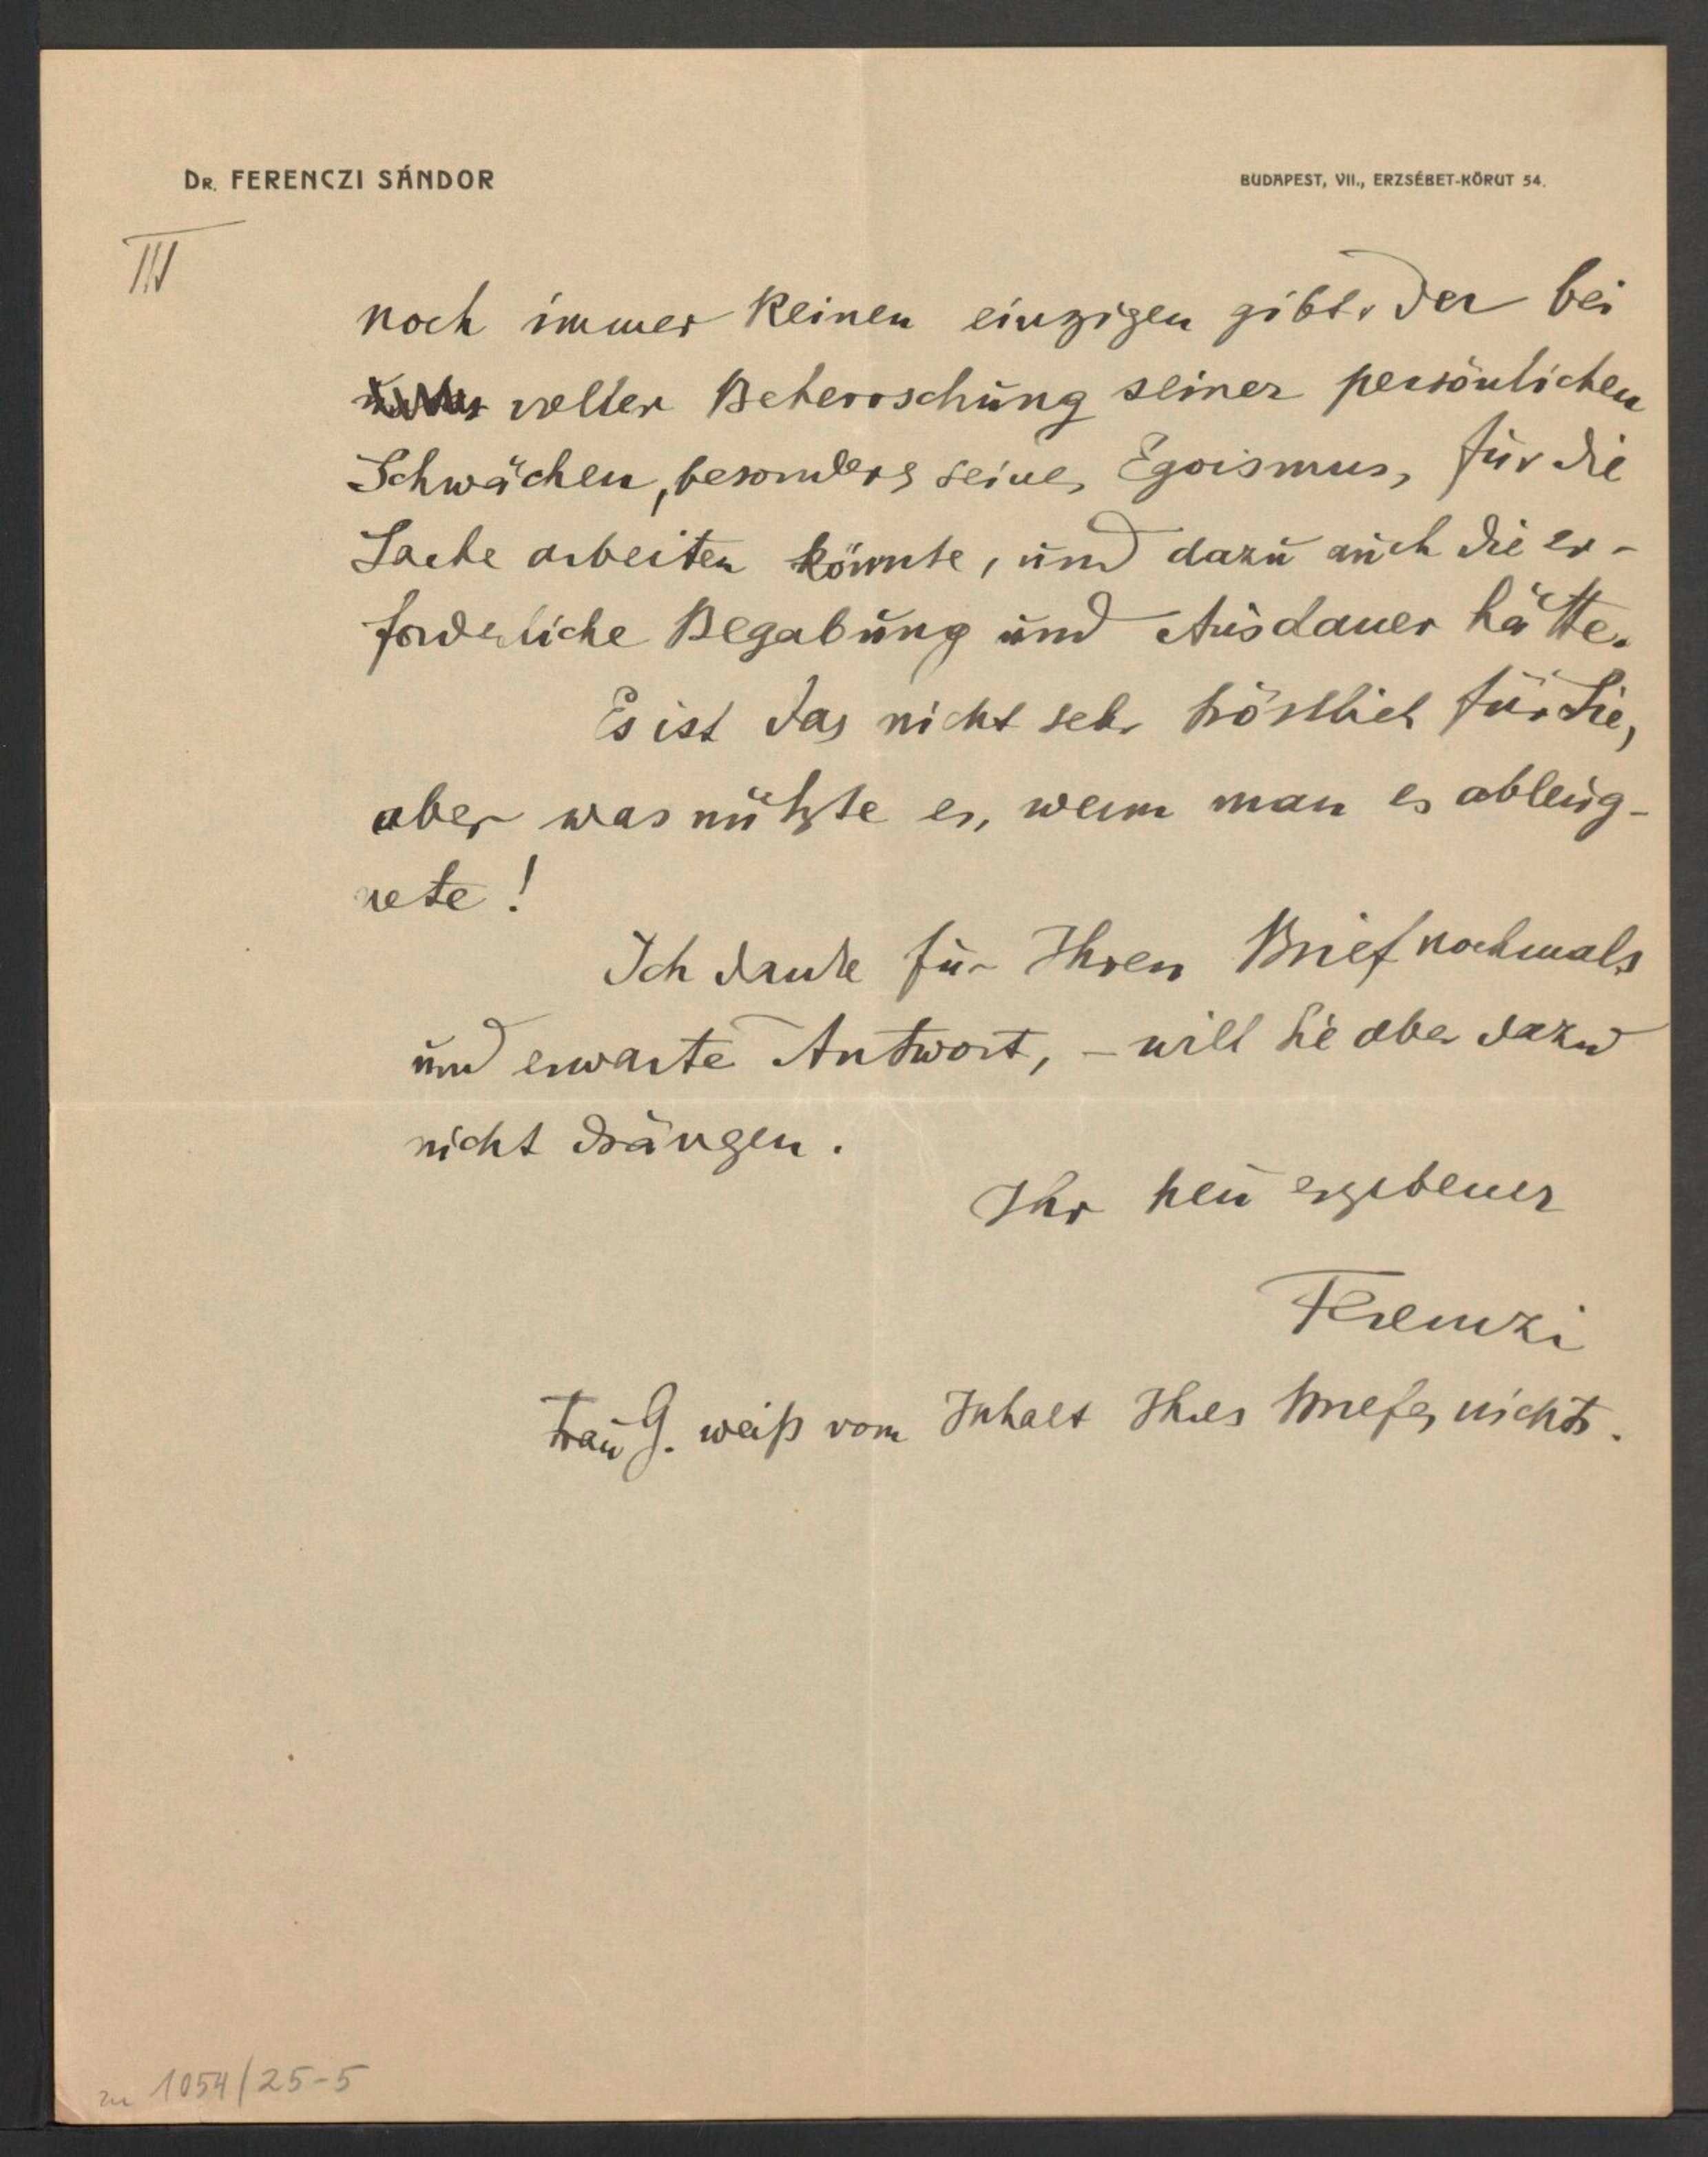 DR. FERENCZI SÁNDOR
BUDAPEST, VII., ERZSÉBET-KÖRUT 54.
III
noch immer keinen einzigen gibt, der bei
voller Beherrschung seiner persönlichen
Schwächen, besonders seines Egoismus, für die
Sache arbeiten könnte, und dazu auch die er-
forderliche Begabung und Ausdauer hätte.
Es ist das nicht sehr tröstlich für Sie,
aber was nützte es, wenn man es ableug-
nete!
Ich danke für Ihren Brief nochmals
und erwarte Antwort, – will Sie aber dazu
nicht drängen.
Ihr treu ergebener
Ferenczi
Frau G. weiß vom Inhalt Ihres Briefes nichts.
zu 1054/25-5